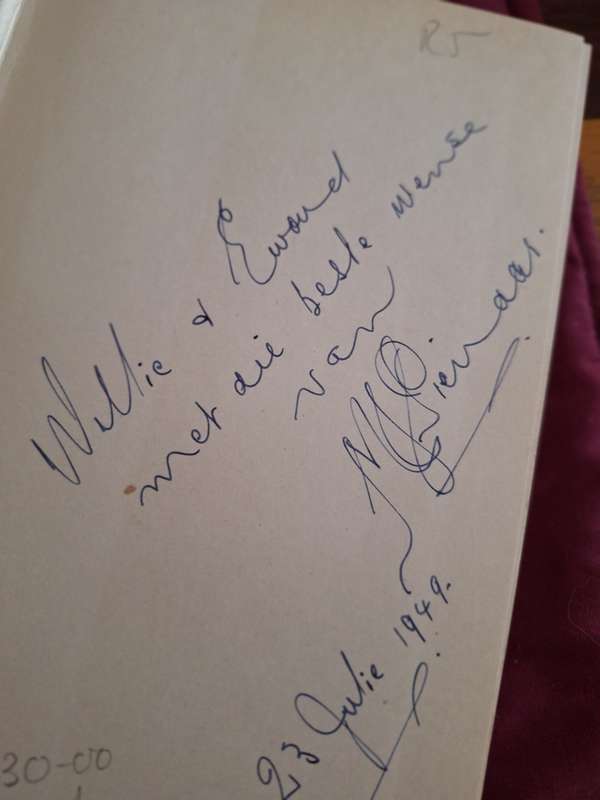 R5
Willie & Ewoud
met die beste wense
van
Pienaar.
23 Julie 1949.
30-00